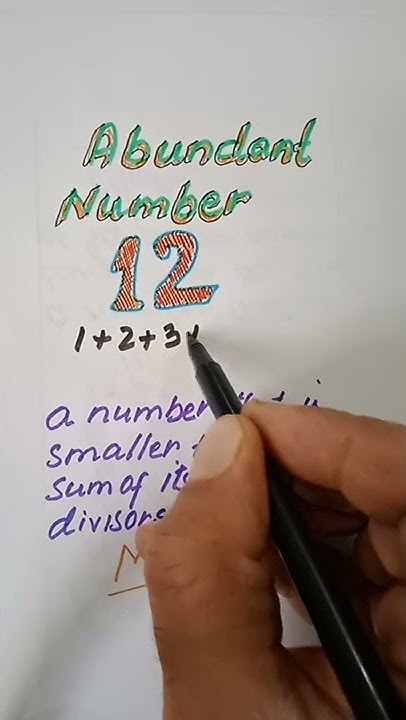 Abundant
Number
12
1+2+3
a number
smaller
sum of its
divisors
M